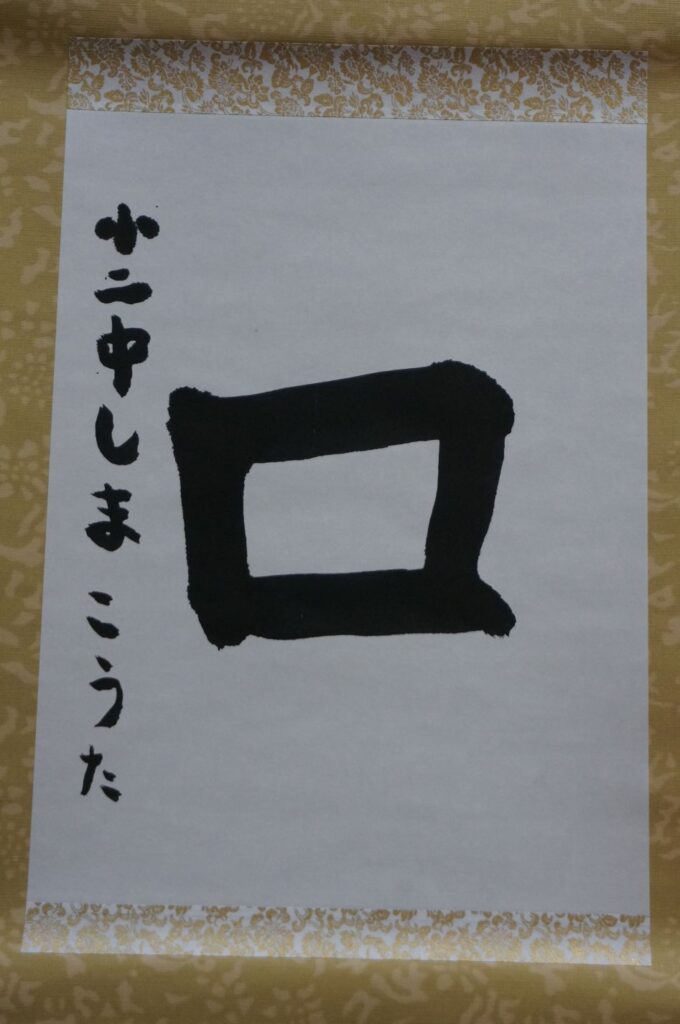 口
小二中しま こうた